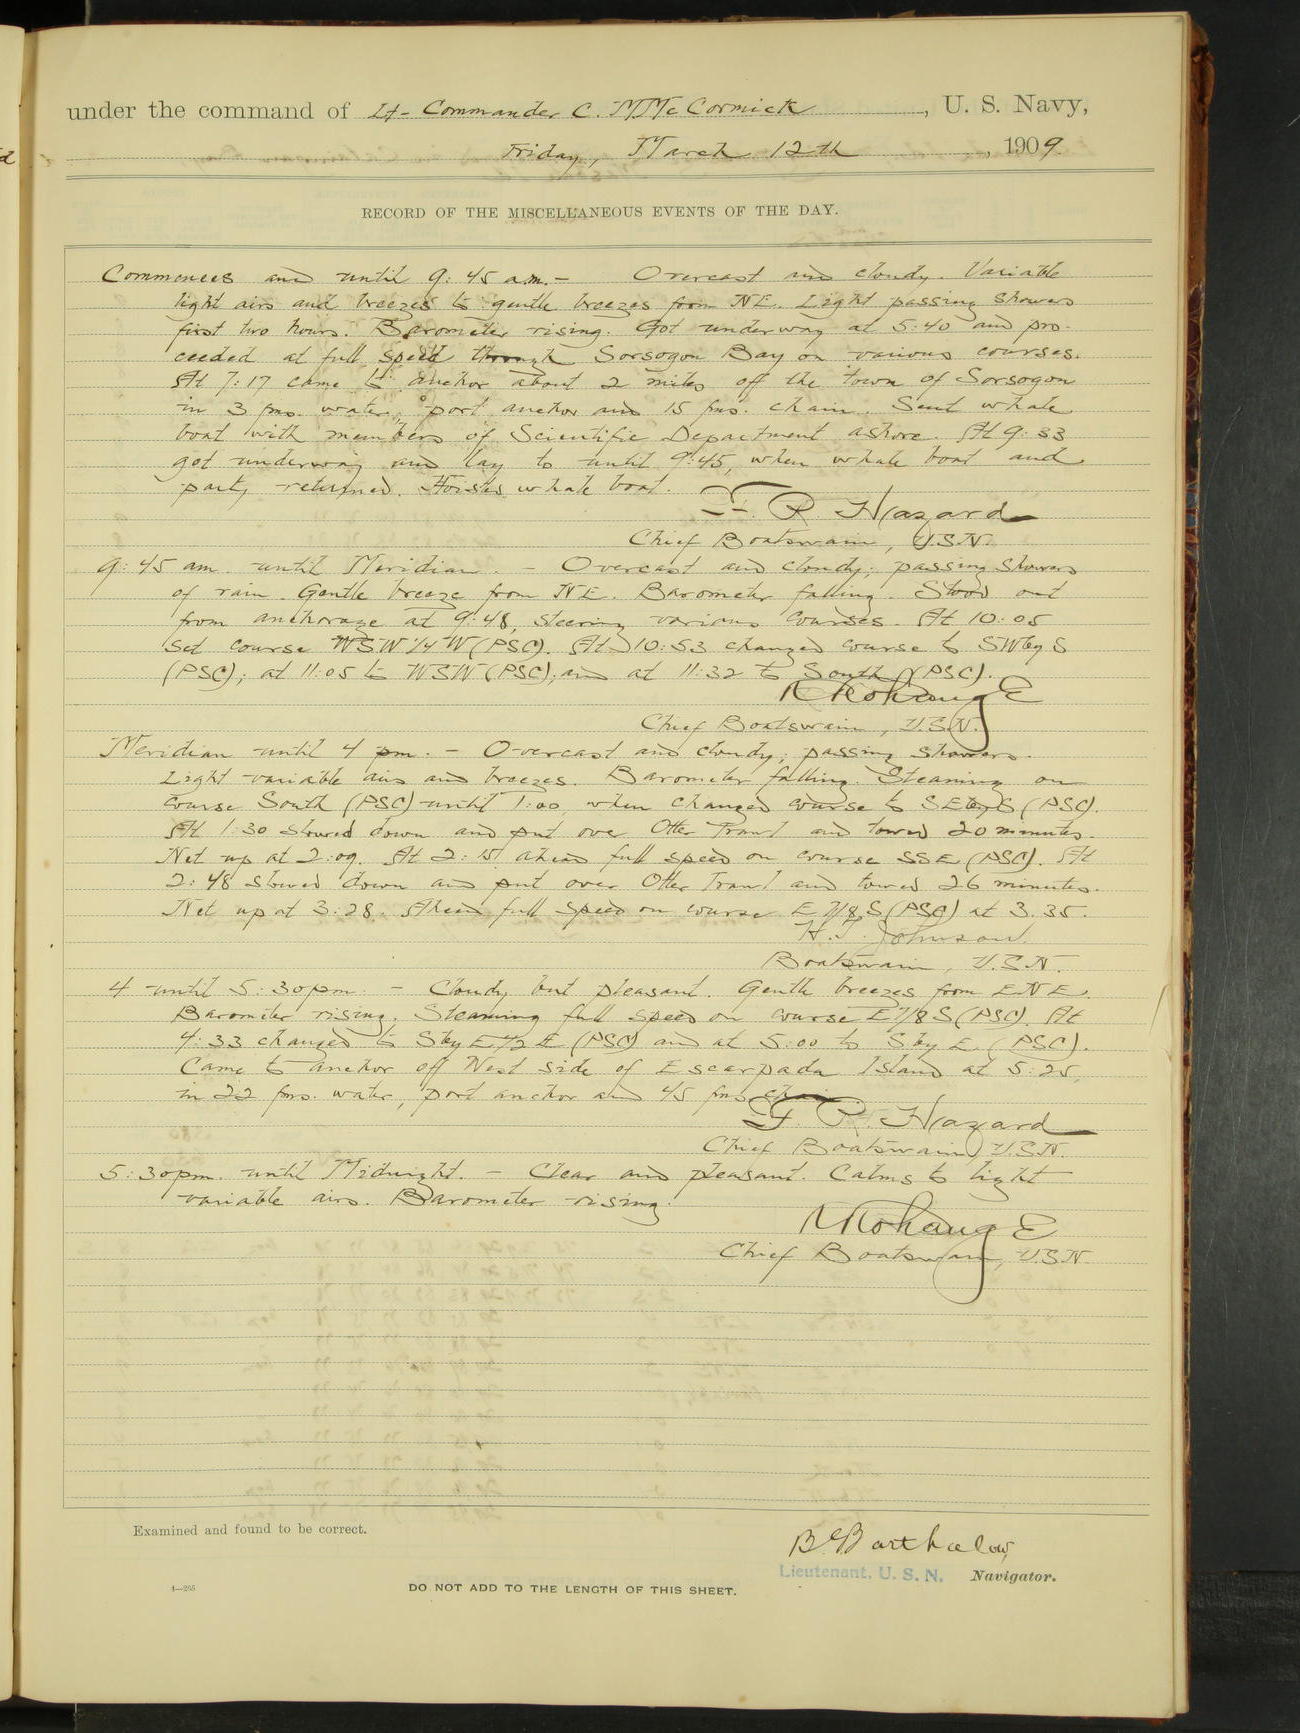 under the command of Lt-Commander C. M McCormick, U. S. Navy,
Friday, March 12th, 1909.
RECORD OF THE MISCELLANEOUS EVENTS OF THE DAY.
Commences and until 9:45 a.m.- Overcast and cloudy. Variable
light airs and breezes to gentle breezes from NE. Light passing showers
first two hours. Barometer rising. Got underway at 5:40 and pro-
ceeded at full speed through Sorsogon Bay on various courses.
At 7:17 came to anchor about 2 miles off the town of Sorsogon
in 3 fms. water, port anchor and 15 fms. chain. Sent whale
boat with members of Scientific Department ashore. At 9:33
got underway and lay to until 9:45, when whale boat and
party returned. Hoisted whale boat.
F. R. Hazard
Chief Boatswain, U.S.N.
9:45 am. until Meridian. - Overcast and cloudy; passing showers
of rain. Gentle breeze from NE. Barometer falling. Stood out
from anchorage at 9:48, steering various courses. At 10:05
set course WSW 1/4 W (PSC). At 10:53 changed course to SWbyS
(PSC); at 11:05 to WSW (PSC); and at 11:32 to South (PSC).
Chief Boatswain, U.S.N.
Meridian until 4 pm. - Overcast and cloudy; passing showers.
Light variable airs and breezes. Barometer falling. Steaming on
course South (PSC) until 1:00, when changed course to SEbyS (PSC).
At 1:30 slowed down and put over Otter Trawl and towed 20 minutes.
Net up at 2:09. At 2:15 ahead full speed on course SSE (PSC). At
2:48 slowed down and put over Otter Trawl and towed 26 minutes.
Net up at 3:28. Ahead full speed on course E 7/8 S (PSC) at 3.35.
H. T. Johnson.
Boatswain, U.S.N.
4 until 5:30pm. - Cloudy but pleasant. Gentle breezes from ENE.
Barometer rising. Steaming full speed on course E 7/8 S (PSC). At
4:33 changed to SbyE 1/2 E (PSC) and at 5:00 to SbyE. (PSC).
Came to anchor off West side of Escarpada Island at 5:25,
in 22 fms. water, port anchor and 45 fms chain.
F. R. Hazard
Chief Boatswain, U.S.N.
5:30pm. until Midnight. - Clear and pleasant. Calms to light
variable airs. Barometer rising.
Chief Boatswain, U.S.N.
Examined and found to be correct.
Lieutenant, U. S. N. Navigator.
4—205
DO NOT ADD TO THE LENGTH OF THIS SHEET.